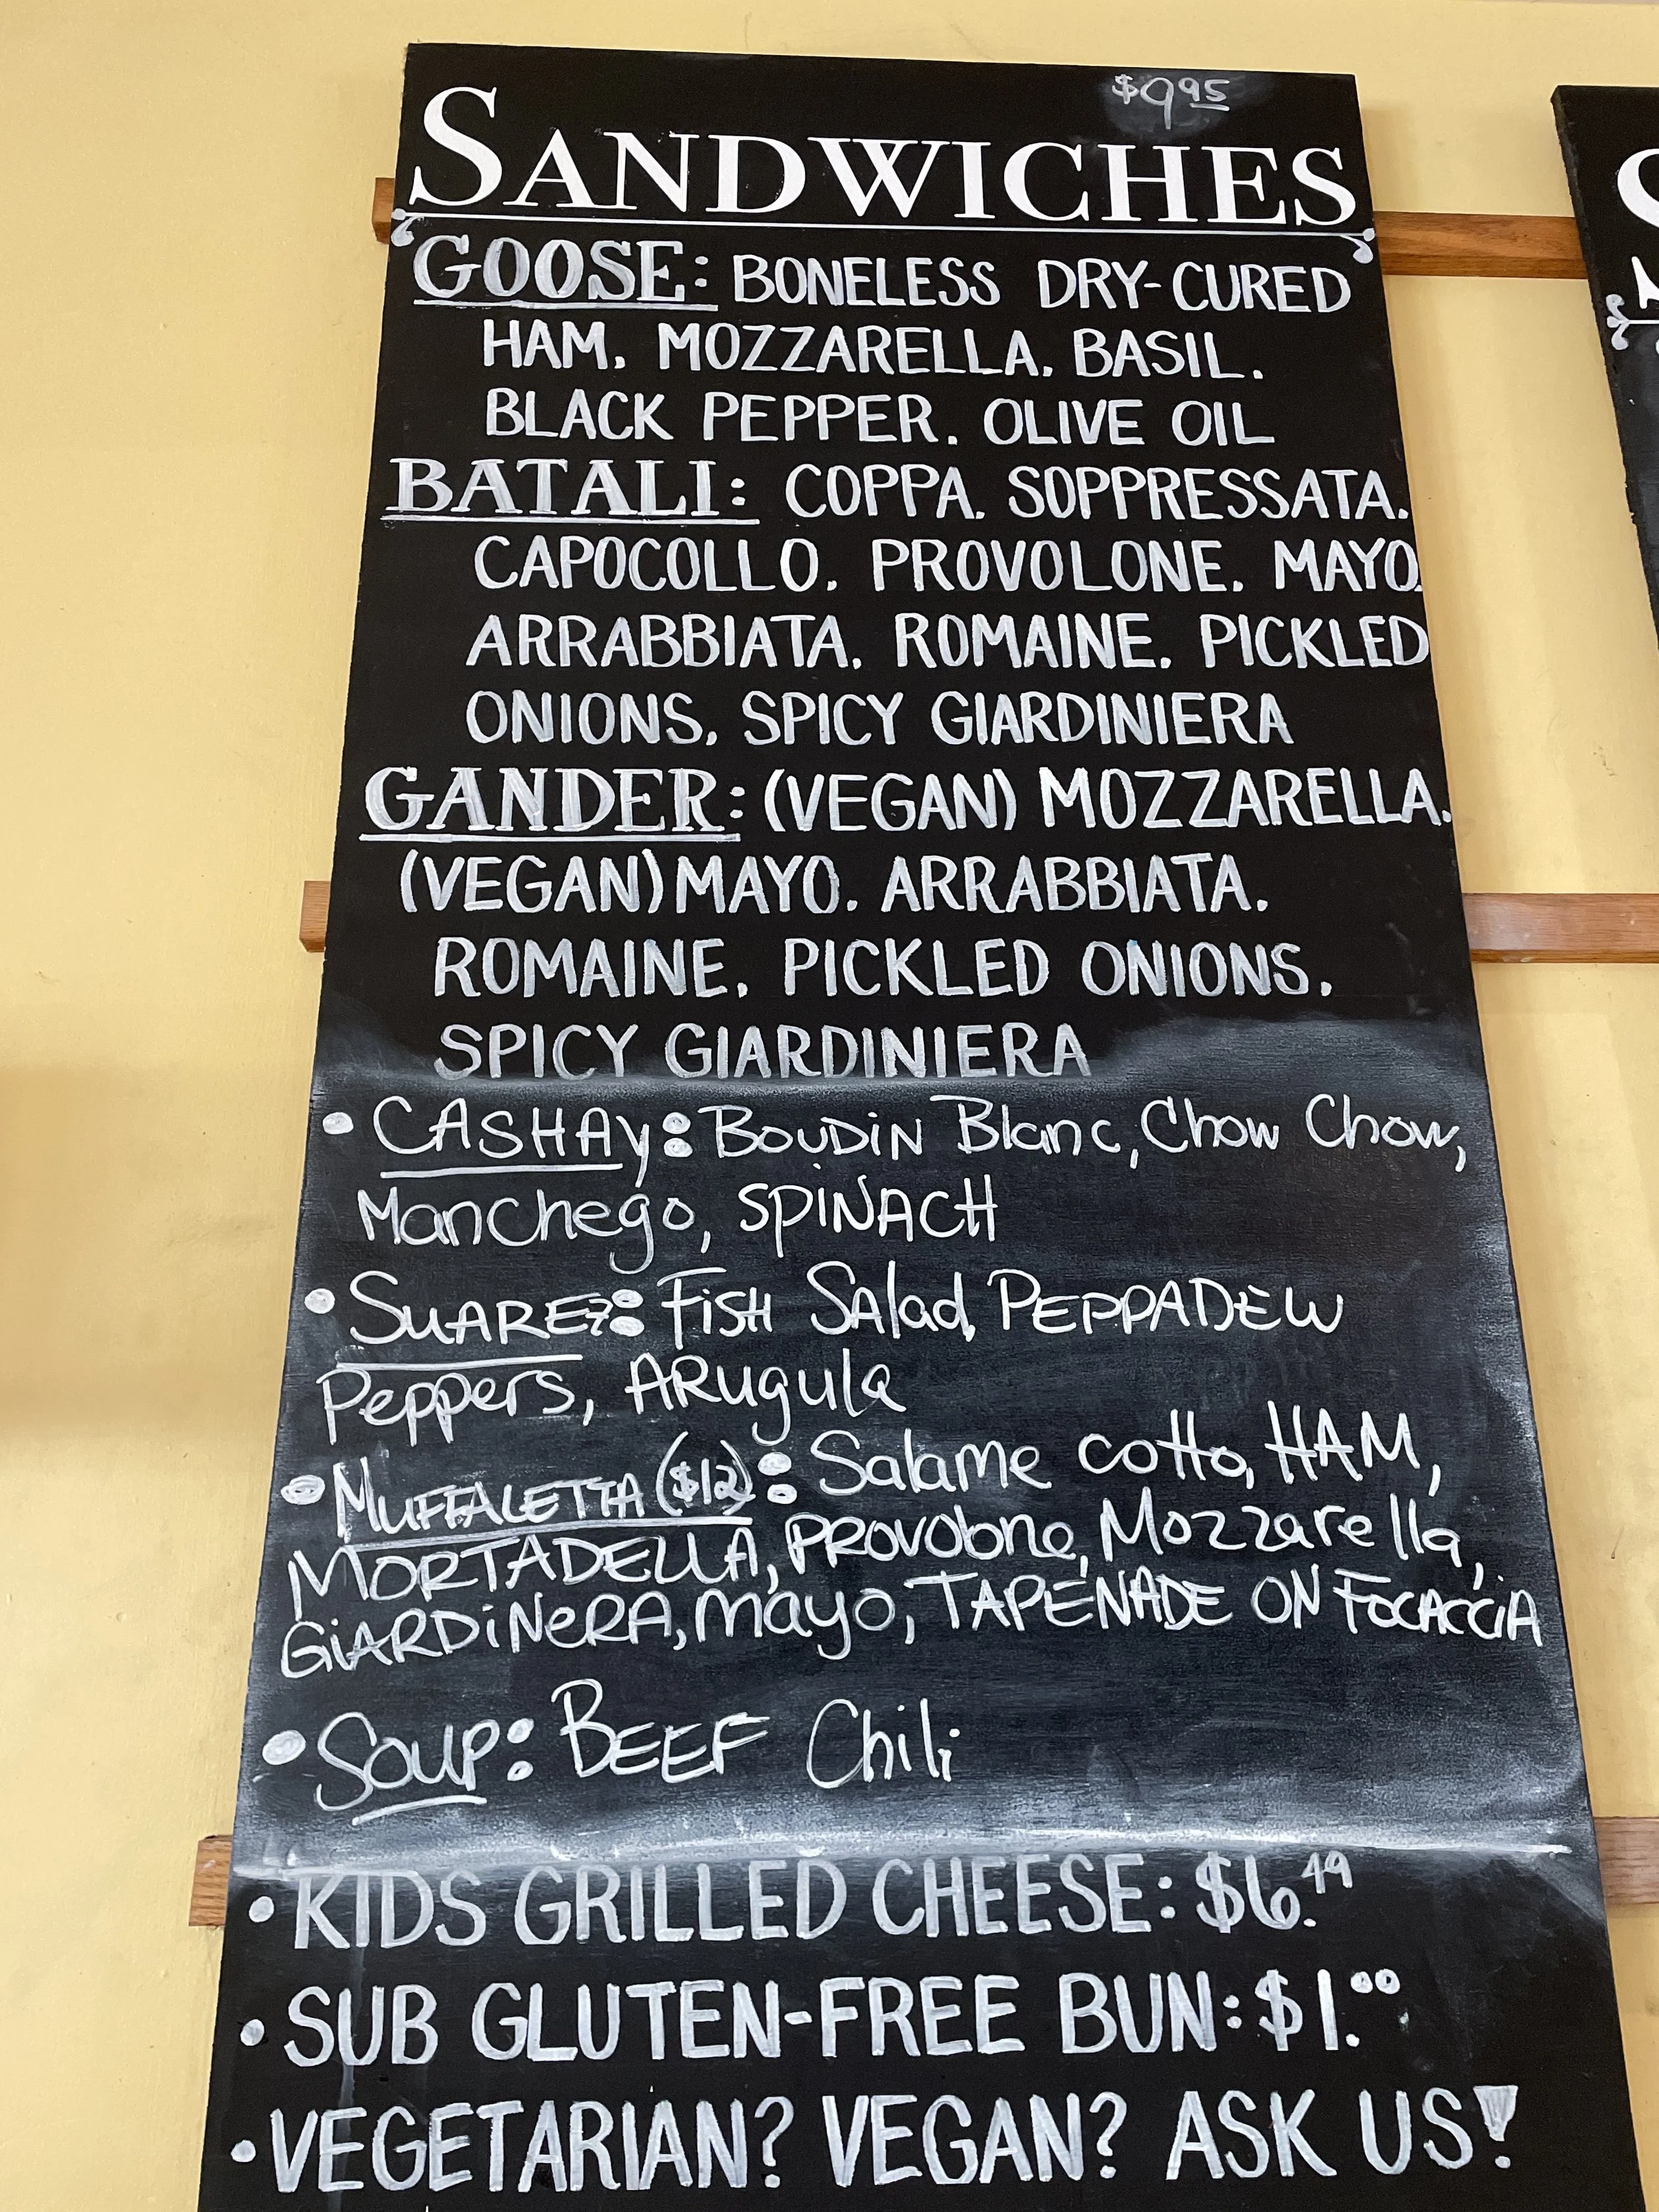 $9.95
SANDWICHES
GOOSE: BONELESS DRY-CURED
HAM. MOZZARELLA. BASIL.
BLACK PEPPER. OLIVE OIL
BATALI: COPPA. SOPPRESSATA.
CAPOCOLLO. PROVOLONE. MAYO.
ARRABBIATA. ROMAINE. PICKLED
ONIONS. SPICY GIARDINIERA
GANDER: (VEGAN) MOZZARELLA.
(VEGAN) MAYO. ARRABBIATA.
ROMAINE. PICKLED ONIONS.
SPICY GIARDINIERA
• CASHAY: BOUDIN Blanc, Chow Chow,
Manchego, SPINACH
• SUAREZ: FISH SAlad, PEPPADEW
Peppers, ARugula
• MUFFALETTA ($12): Salame cotto, HAM,
MORTADELLA, PROVOlone, Mozzarella,
GIARDINeRA, mayo, TAPENADE ON FOCACCIA
• SOUP: BEEF Chili
• KIDS GRILLED CHEESE: $6.49
• SUB GLUTEN-FREE BUN: $1.00
• VEGETARIAN? VEGAN? ASK US!